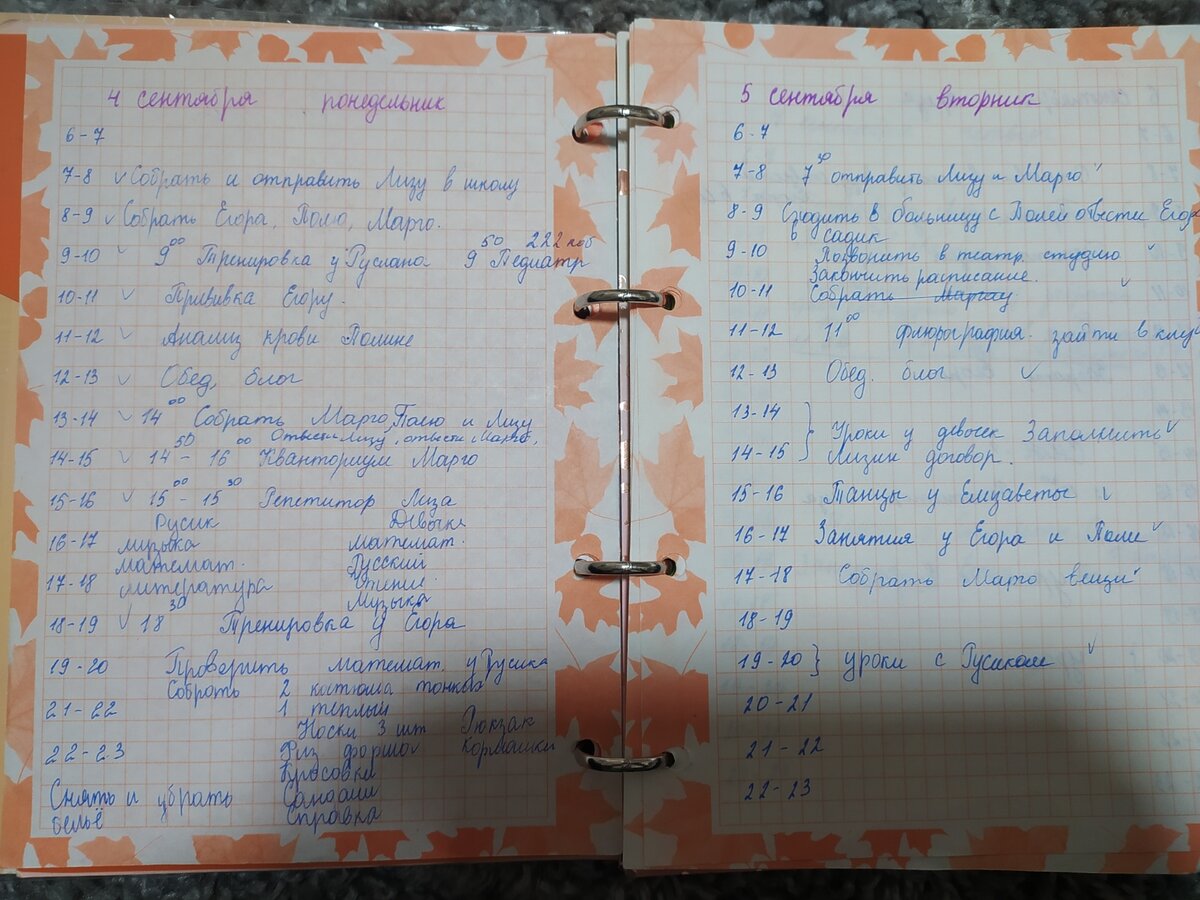 4 сентября понедельник
6-7
7-8 ✓ Собрать и отправить Лизу в школу
8-9 ✓ Собрать Егора, Полю, Марго.
9-10 ✓ 9⁰⁰ Тренировка у Руслана 9⁵⁰ Педиатр 222 каб
10-11 ✓ Прививка Егору.
11-12 ✓ Анализ крови Полине
12-13 ✓ Обед, блог
13-14 ✓ 14⁰⁰ Собрать Марго, Полю и Лизу
Отвести Лизу, отвести Марго,
14-15 ✓ 14⁵⁰ - 16⁰⁰ Кванториум Марго
15-16 ✓ 15⁰⁰ - 15³⁰ Репетитор Лиза
Русик Девочки
16-17 музыка математ.
математ. Русский
17-18 литература Чтение
Музыка
18-19 ✓ 18³⁰ Тренировка у Егора
19-20 Проверить математ. у Русика
Собрать 2 костюма тонких
21-22 1 теплый
Носки 3 шт Рюкзак
22-23 Физ. форма Кормашки
Кросовки
Снять и убрать Сандали
бельё Справка
5 сентября вторник
6-7
7-8 7 отправить Лизу и Марго ✓
8-9 Сходить в больницу с Полей отвести Егора
в садик
9-10 Позвонить в театр. студию ✓
Закончить расписание.
10-11 Собрать ✓
11-12 11⁰⁰ флюрография. зайти в клуб
12-13 Обед. блог ✓
13-14
Уроки у девочек Заполнить ✓
14-15 Лизин договор.
15-16 Танцы у Елизаветы ✓
16-17 Занятия у Егора и Поли ✓
17-18 Собрать Марго вещи ✓
18-19
19-20 } уроки с Русиком ✓
20-21
21-22
22-23